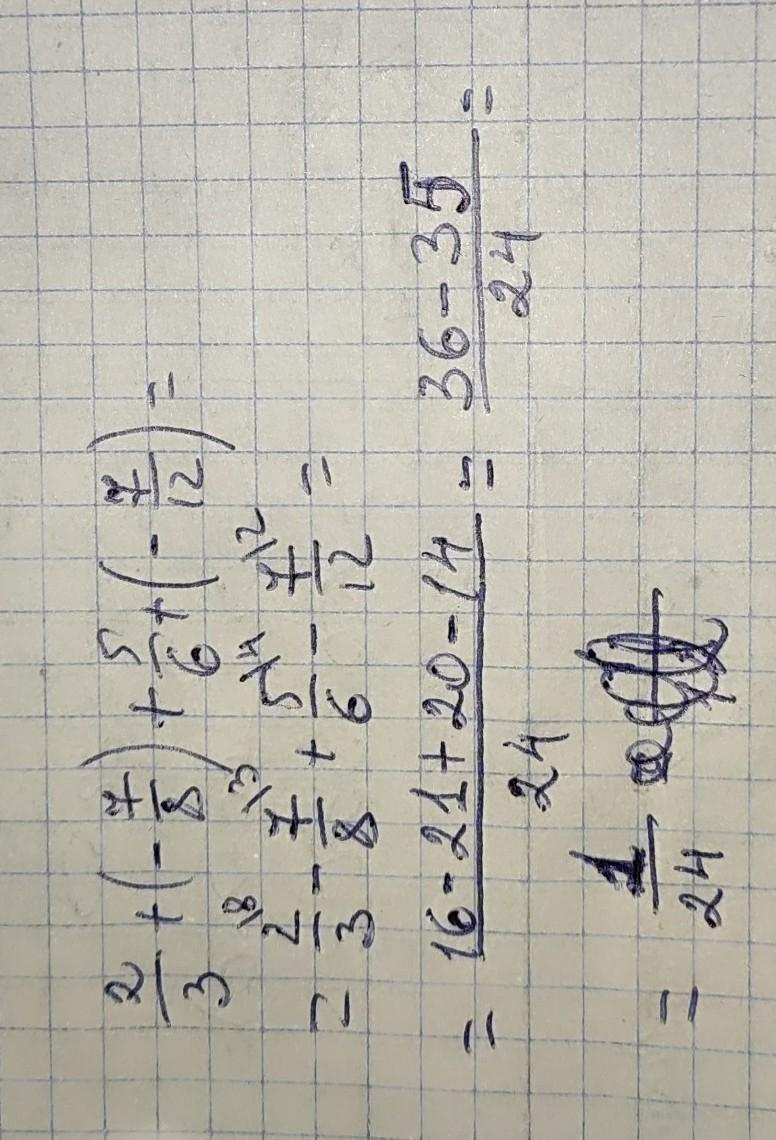 2/3 + (-7/8) + 5/6 + (-7/12) =
= 2/3 \8 - 7/8 \3 + 5/6 \4 - 7/12 \2 =
= (16-21+20-14)/24 = (36-35)/24 =
= 1/24